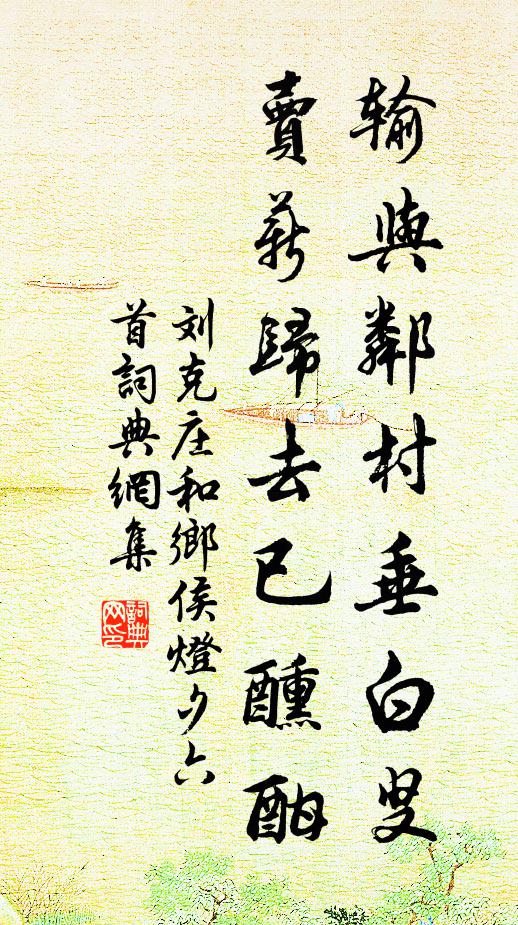 輸與鄰村垂白叟
賣薪歸去已醺酣
刘克庄和鄉侯燈夕六
首詞典網集
詞典
网印